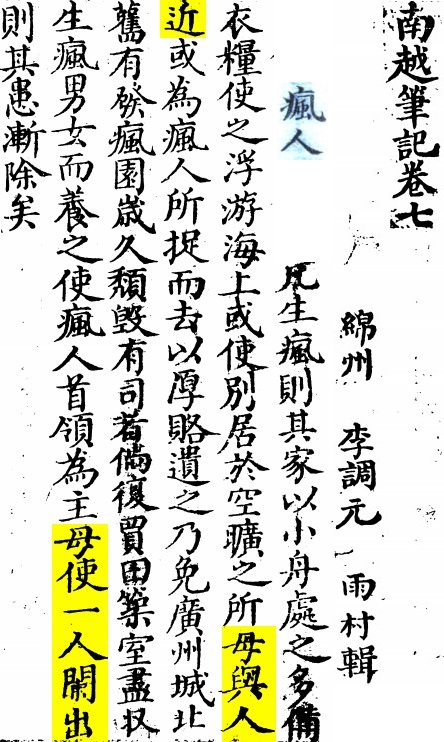 南越筆記卷七
綿州 李調元 雨村輯
瘋人
凡生瘋則其家以小舟處之多備
衣糧使之浮游海上或使別居於空曠之所毋與人
近或為瘋人所捉而去以厚賂遺之乃免廣州城北
舊有發瘋園歲久頹毀有司者倘復買田築室盡収
生瘋男女而養之使瘋人首領為主毋使一人闌出
則其患漸除矣